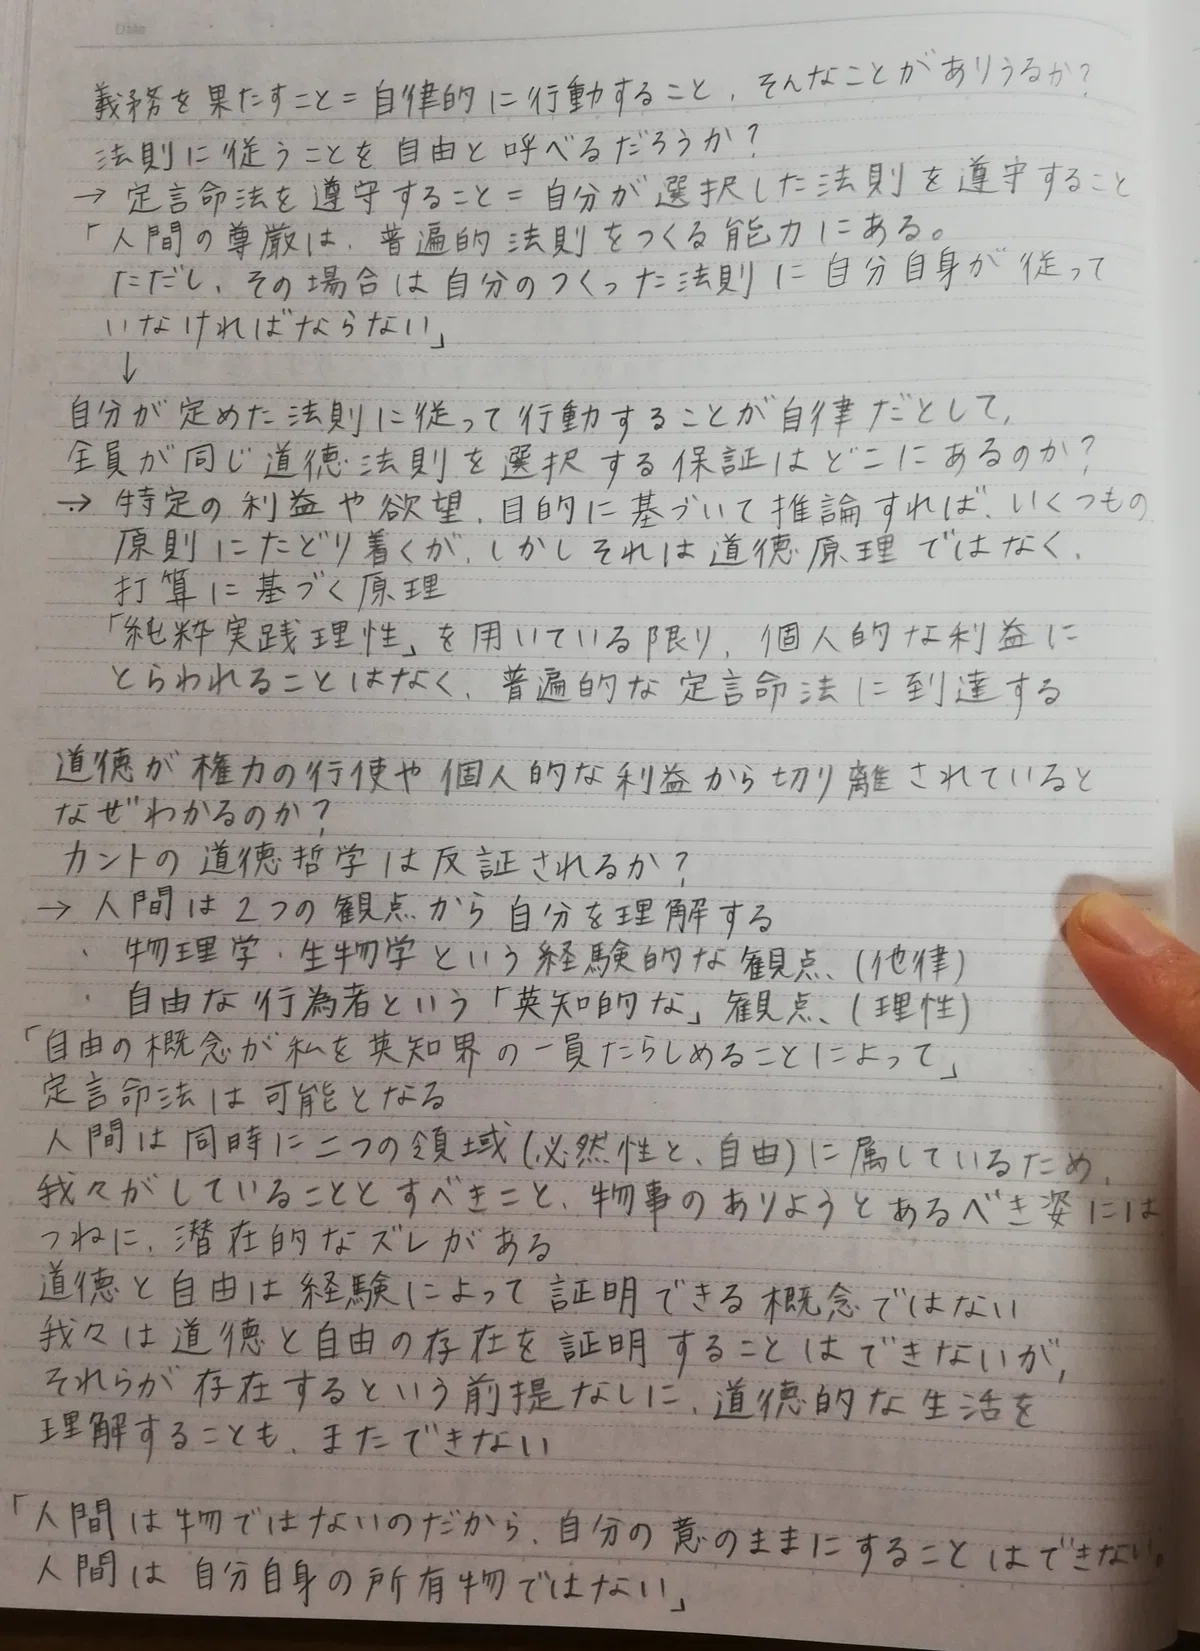 Date
義務を果たすこと=自律的に行動すること、そんなことがありうるか?
法則に従うことを自由と呼べるだろうか?
→ 定言命法を遵守すること=自分が選択した法則を遵守すること
「人間の尊厳は、普遍的法則をつくる能力にある。
ただし、その場合は自分のつくった法則に自分自身が従って
いなければならない」
↓
自分が定めた法則に従って行動することが自律だとして、
全員が同じ道徳法則を選択する保証はどこにあるのか?
→ 特定の利益や欲望、目的に基づいて推論すれば、いくつもの
原則にたどり着くが、しかしそれは道徳原理ではなく、
打算に基づく原理
「純粋実践理性」を用いている限り、個人的な利益に
とらわれることはなく、普遍的な定言命法に到達する
道徳が権力の行使や個人的な利益から切り離されていると
なぜわかるのか?
カントの道徳哲学は反証されるか?
→ 人間は2つの観点から自分を理解する
・ 物理学・生物学という経験的な観点、(他律)
・ 自由な行為者という「英知的な」観点、(理性)
「自由の概念が私を英知界の一員たらしめることによって」
定言命法は可能となる
人間は同時に二つの領域(必然性と、自由)に属しているため、
我々がしていることとすべきこと、物事のありようとあるべき姿には
つねに、潜在的なズレがある
道徳と自由は経験によって証明できる概念ではない
我々は道徳と自由の存在を証明することはできないが、
それらが存在するという前提なしに、道徳的な生活を
理解することも、またできない
「人間は物ではないのだから、自分の意のままにすることはできない。
人間は自分自身の所有物ではない」